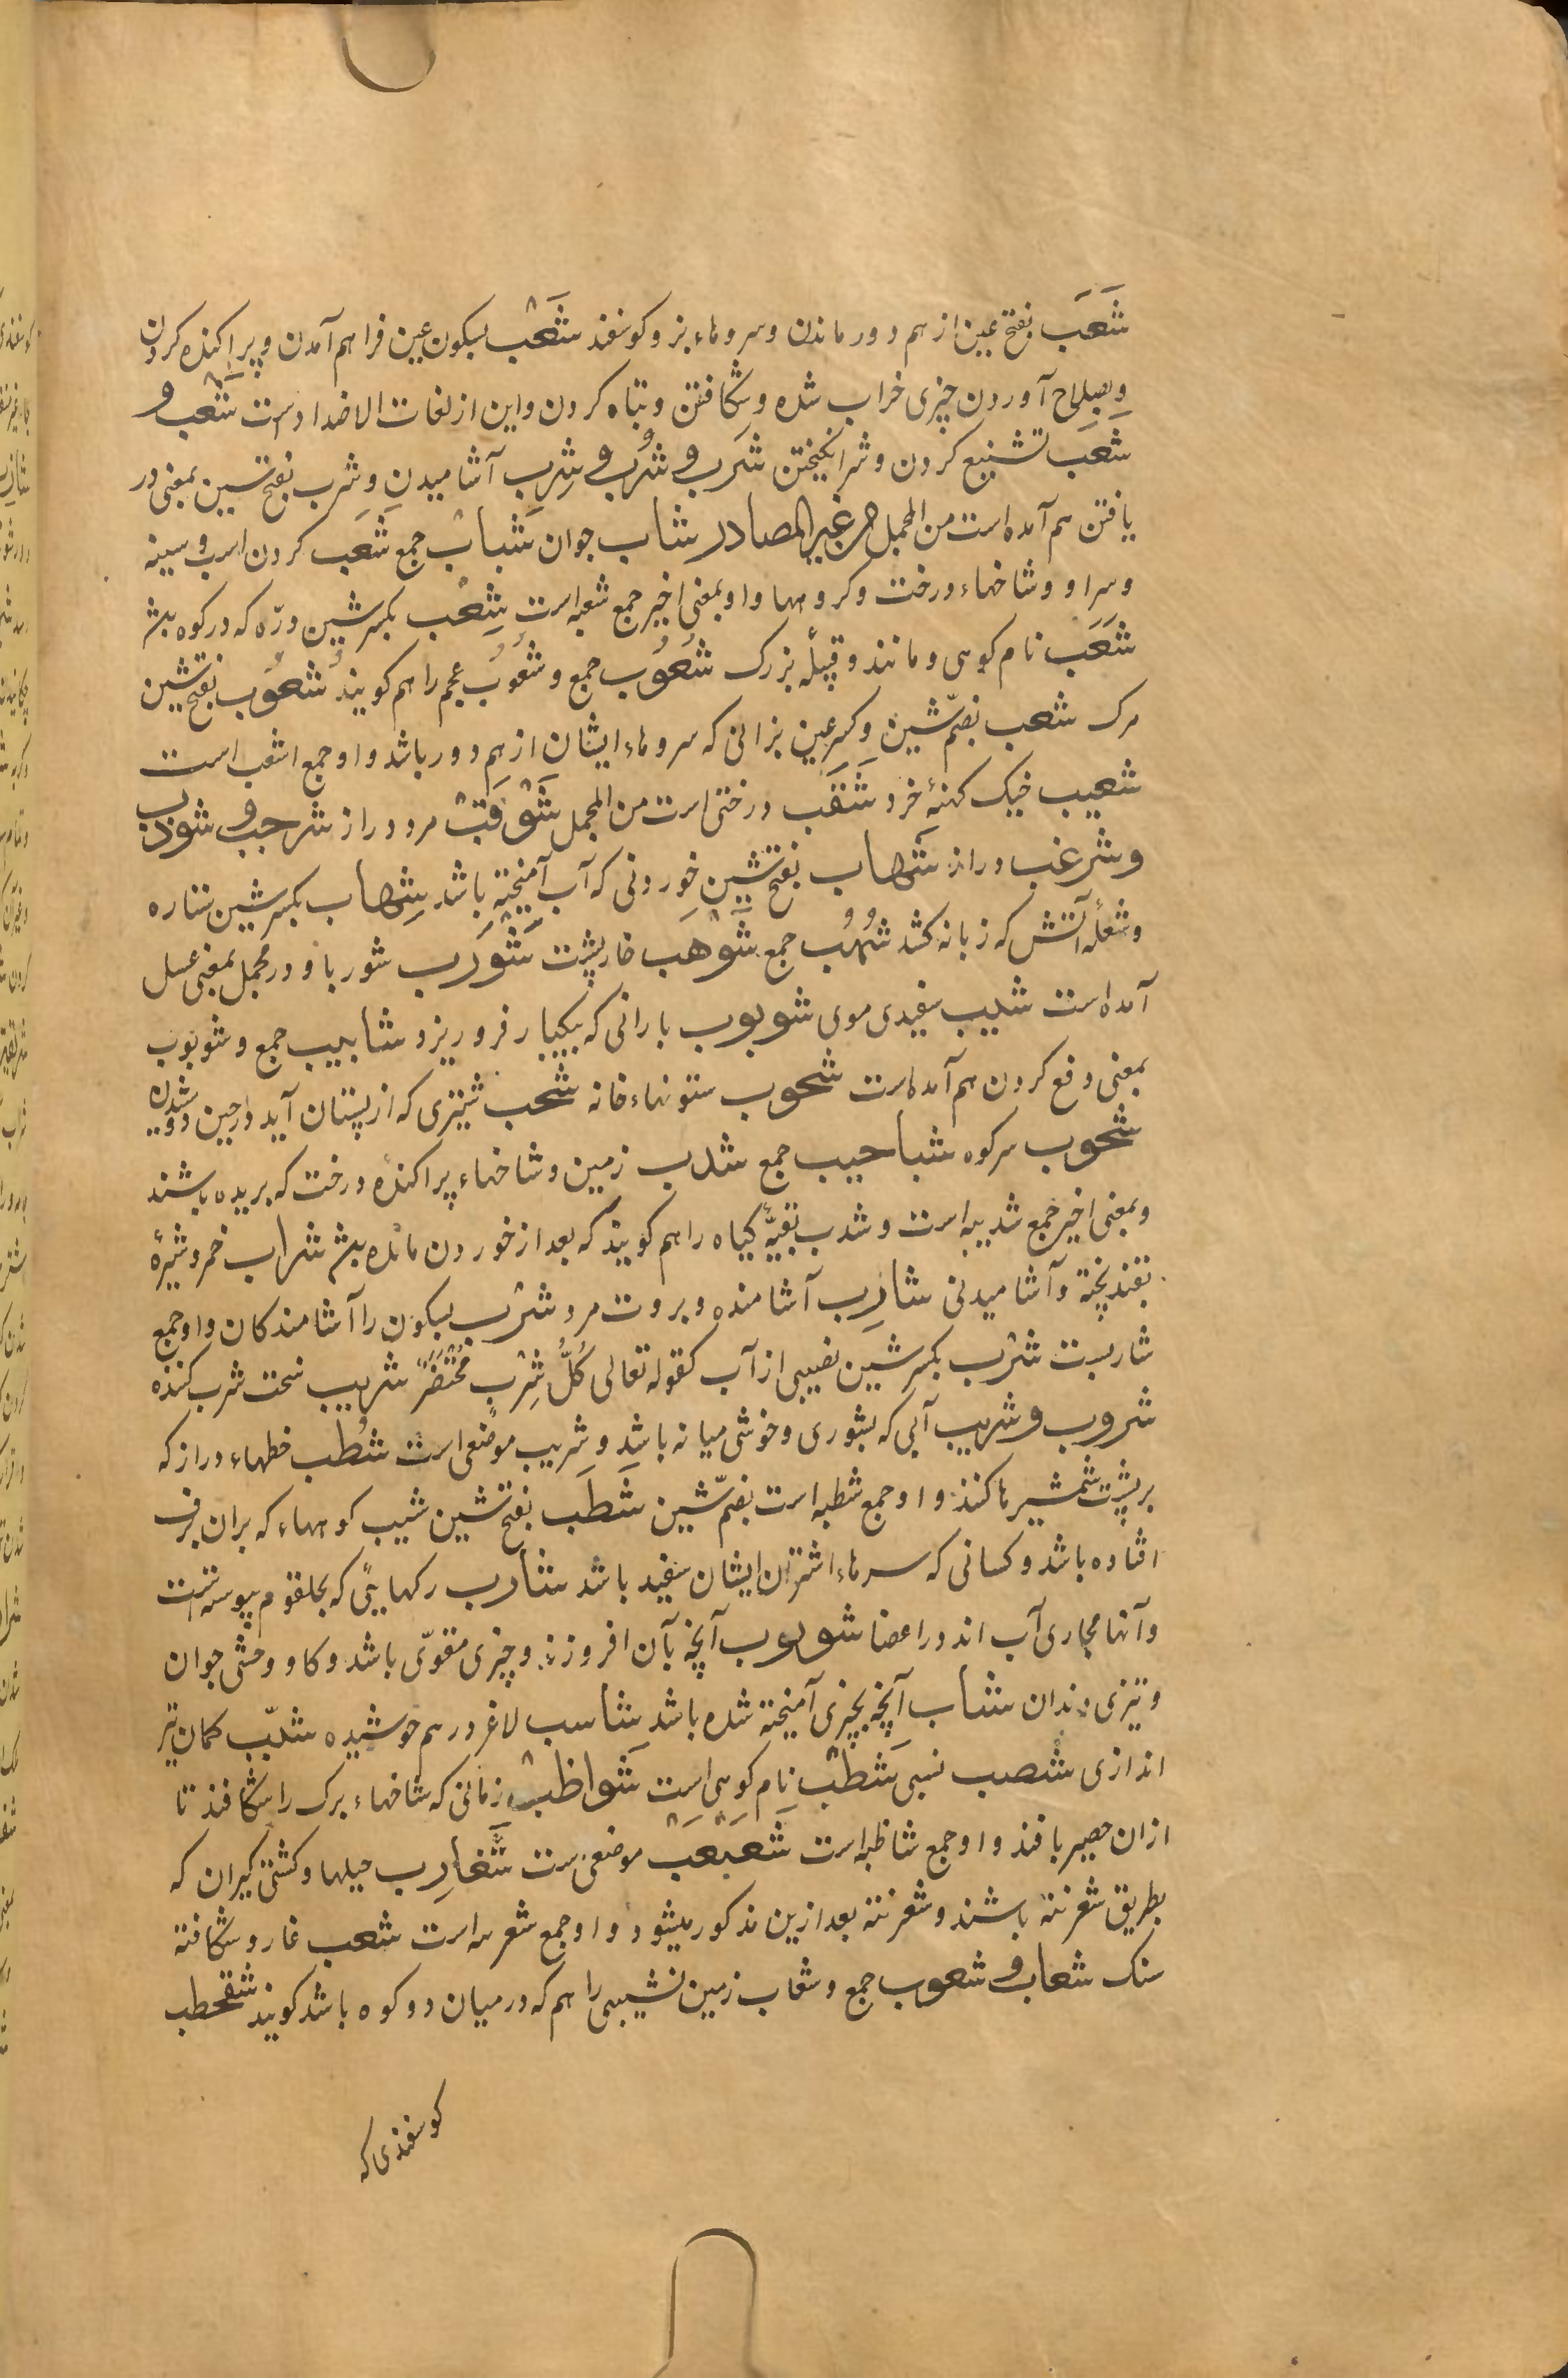 شَعَب بفتح عین از هم دور ماندن و سروهاء بز و کوسفند شَعْب بسکون عین فراهم آمدن و پراکنده کردن
و بصلاح آوردن چیزی خراب شده و شکافتن و تباه کردن و این از لغات الاضدادست شَغْب و
شَغَب تشنیع کردن و شر انکیختن شَرب و شُرب و شِرب آشامیدن و شَرب بفتح شین بمعنی در
یافتن هم آمده است من المجمل من غیر المصادر شاب جوان شَباب جمع شَعَب کردن اسب و سینه
و سر او و شاخهاء درخت و کروهها و او بمعنی اخیر جمع شعبه است شِعْب بکسر شین درّه که در کوه باشد
شَعَب نام کوهی و مانند و قبیلۀ بزرک شُعُوب جمع و شُعُوب عجم را هم کویند شَعُوب بفتح شین
مرک شعب بضمّ شین و کسر عین بزانی که سروهاء ایشان از هم دور باشد و او جمع اشعب است
شعیب خیک کهنۀ خرد شَقَب درختی است من المجمل شَوْقَبْ مرد دراز شرجب و شوذب
و شرغب دراز شَهاب بفتح شین خوردنی که آب آمیخته باشد شِهاب بکسر شین ستاره
و شعلۀ آتش که زبانه کشد شُهُب جمع شَوْهَب خارپشت شَوْرَب شوربا و در مجمل بمعنی عسل
آمده است شیب سفیدی موی شوبوب بارانی که بیکبار فرو ریزد شابیب جمع و شوبوب
بمعنی دفع کردن هم آمده است شحوب ستونهاء خانه شخب شیری که از پستان آید در حین دوشیدن
شخوب سر کوه شباحیب جمع شذب زمین و شاخهاء پراکنده درخت که بریده باشند
و بمعنی اخیر جمع شذیبه است و شذب بقیّۀ کیاه را هم کویند که بعد از خوردن مانده باشد شراب خمر و شیرۀ
بقند پخته و آشامیدنی شارِب آشامنده و بروت مرد شَرْب بسکون را آشامندکان و او جمع
شاربست شِرْب بکسر شین نصیبی از آب کقوله تعالی کُلُّ شِرْبٍ مُحْتَضَرٌ شریب سخت شرب کننده
شروب و شریب آبی که بشوری و خوشی میانه باشد و شریب موضعی است شُطَب خطهاء دراز که
بر پشت شمشیرها کنند و او جمع شطبه است بضمّ شین شَطَب بفتح شین شیب کوهها که بران برف
افتاده باشد و کسانی که سرهاء اشتران ایشان سفید باشد شارب رکهایئی که بحلقوم پیوسته است
و آنها مجاری آب اند در اعضا شوبوب آنچه بآن افروزند و چیزی مقوّی باشد و کاو وحشی جوان
و تیزی دندان شناب آنچه بچیزی آمیخته شده باشد شاسب لاغر در هم خوشیده کمان تیر
اندازی شصب نسبی شَطْب نام کوهی است شَواظب زمانی که شاخهاء برک را شکافند تا
ازان حصیر بافند و او جمع شاظبه است شَعَبْعَبْ موضعی است شَغارِب حیلها و کشتی کیران که
بطریق شغرنته باشند و شغرنته بعد ازین مذکور میشود و او جمع شغربه است شعب غار و شکافته
سنک شعاب و شعوب جمع و شعاب زمین نشیبی را هم که در میان دو کوه باشد کویند شقحطب
کوسفندی که